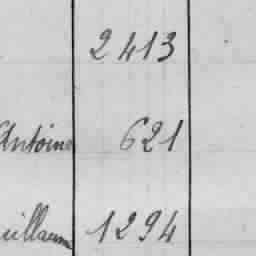 2413
Antoine 621
uillaum 1294